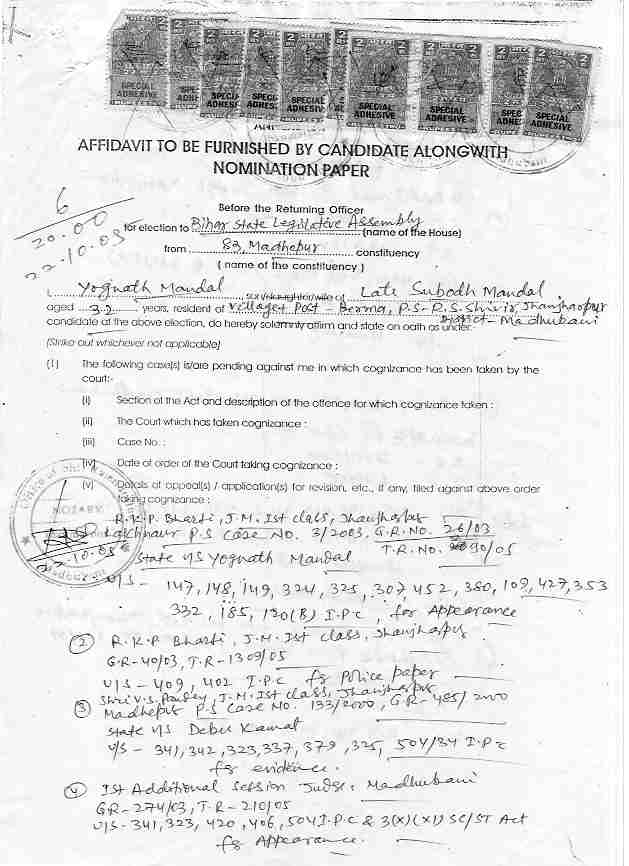 SPECIAL ADHESIVE
SPECIAL ADHESIVE
SPECIAL ADHESIVE
SPECIAL ADHESIVE
SPECIAL ADHESIVE
SPECIAL ADHESIVE
AFFIDAVIT TO BE FURNISHED BY CANDIDATE ALONGWITH
NOMINATION PAPER
6
20.00
22.10.05
Before the Returning Officer
for election to Bihar State Legislative Assembly (name of the House)
from 83, Madhepur constituency
( name of the constituency )
I, Yognath Mandal son/daughter/wife of Late Subodh Mandal
aged 32 years, resident of Village+Post - Berma, P.S- R.S. Shivir, Jhanjharpur
District- Madhubani
candidate at the above election, do hereby solemnly affirm and state on oath as under:-
(Strike out whichever not applicable)
(1) The following case(s) is/are pending against me in which cognizance has been taken by the
court:-
(i) Section of the Act and description of the offence for which cognizance taken :
(ii) The Court which has taken cognizance :
(iii) Case No. :
(iv) Date of order of the Court taking cognizance :
(v) Details of appeal(s) / application(s) for revision, etc., if any, filed against above order
taking cognizance :
NOTARY
22.10.05
R.K.P Bharti, J.M. Ist class, Jhanjharpur
P.S Case No. 3/2003, G.R. No. 26/03
State V/S Yognath Mandal T.R. No. 2090/05
U/S - 147, 148, 149, 324, 325, 307 452, 380, 109, 427, 353
332, 185, 120(B) I.P.C, for Appearance
(2) R.K.P Bharti, J.M. Ist class, Jhanjharpur
G.R-40/03, T.R-1309/05
U/S - 409, 402 I.P.C for Police paper
(3) Shri V.S. Pandey, J.M. Ist class, Jhanjharpur
Madhepur P.S Case No. 133/2000, G.R- 485/2000
State V/S Debu Kamat
U/S - 341, 342, 323, 337, 379, 325, 504/34 I.P.C
for evidence.
(4) Ist Additional Session Judge, Madhubani
G.R-274/03, T.R-210/05
U/S-341, 323, 420, 406, 504 I.P.C & 3(X)(XI) SC/ST Act
for Appearance.